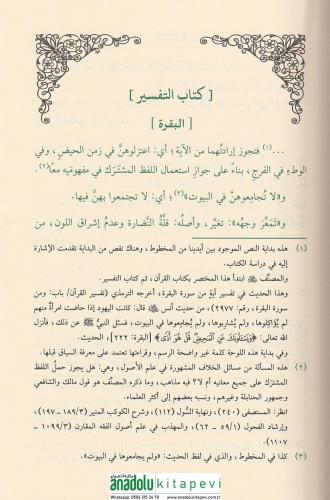 [ كتاب التفسير ]
[ البقرة ]
...(١) فتجوز إرادتُهما من الآية؛ أي: اعتزلوهنَّ في زمن الحيض، وفي
الوطءِ في الفرج، بناءً على جوازِ استعمال اللفظ المشترَك في مفهومَيه معًا(٢).
و«لا تُجامِعوهنَّ في البيوت»(٣)؛ أي: لا تجتمعوا بهنَّ فيها.
و«تَمَعَّرَ وجهُه»: تغيَّر، وأصلُه: قلَّةُ النَّضارة وعدمُ إشراق اللون، من
(١) هذه بداية النص الموجود بين أيدينا من المخطوط، وهناك نقص من البداية تقدمت الإشارة
إليه في دراسة الكتاب.
والمصنِّف ﷺ ابتدأ هذا المختصر بكتاب القرآن، ثم كتاب التفسير.
وهذا الحديث في تفسير آيةٍ من سورة البقرة، أخرجه الترمذي (تفسير القرآن/ باب: ومن
سورة البقرة، رقم: ٢٩٧٧)، من حديث أنس ﷺ قال: كانت اليهود إذا حاضت امرأةٌ منهم
لم يُؤاكِلوها، ولم يُشارِبوها، ولم يُجامِعوها في البيوت، فسئل النبيُّ ﷺ عن ذلك، فأنزل
الله تعالى: ﴿وَيَسْـَٔلُونَكَ عَنِ ٱلْمَحِيضِ قُلْ هُوَ أَذًى﴾ [البقرة: ٢٢٢]، الحديث.
وفي بداية هذه اللوحة كلمة غير واضحة الرسم، وقراءتها تعتمد على معرفة السياق قبلها.
(٢) هذه المسألة من مسائل الخلاف المشهورة في علم الأصول، وهي: هل يجوز حملُ اللفظ
المشترك على جميع معانيه أم لا؟ فيه مذاهب، وما ذكره المصنِّف هو قول مالك والشافعي
وجمهور الحنابلة وغيرهم، ونسبه بعضهم إلى أكثر العلماء.
انظر: المستصفى (٢٤٠)، ونهاية السُّول (١١٢)، وشرح الكوكب المنير (١٨٩/٣ -١٩٧)،
وإرشاد الفحول (٥٩/١ -٦٢)، والمهذب في علم أصول الفقه المقارن (١٠٩٩/٣ -
١١٠٧)
(٣) كذا في المخطوط، والذي في لفظ الحديث: «ولم يجامعوها في البيوت».
anadolu kitapevi
Whatsapp: 0506 125 34 79 www.anadolukitapevi.net